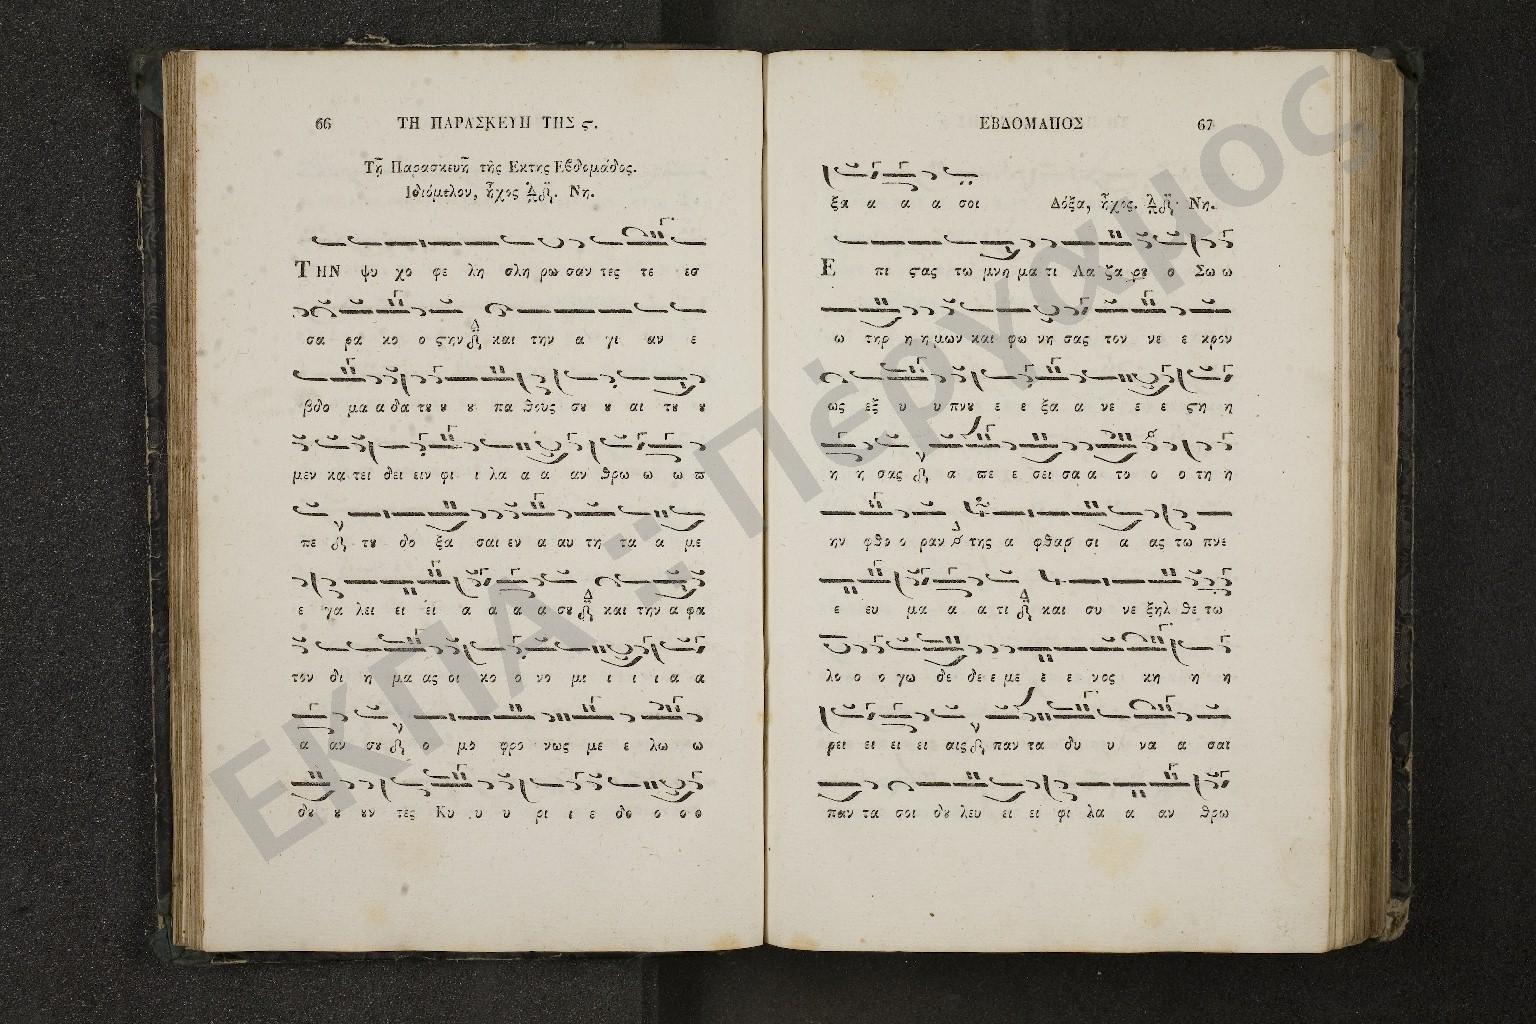 66 ΤΗ ΠΑΡΑΣΚΕΥΗ ΤΗΣ ϛ.
Τῇ Παρασκευῇ τῆς Εκτης Εβδομάδος.
Ιδιόμελον, ἦχος Νη.
ΤΗΝ ψυ χο φε λη σλη ρω σαν τες τε εσ
σα ρα κο ο ϛην και την α γι αν ε
βδο μα α δα τȣ ȣ ȣ πα θους σȣ ȣ αι τȣ ȣ
μεν κα τει δει ειν φι ι λα α α αν θρω ω ω π
πε τȣ δο ξα σαι εν α αυ τη τα α με
ε γα λει ει ει α α α α σȣ και την α φα
τον δι η μα ας οι κο ο νο μι ι ι ι α α
α αν σȣ ο μο φρο νως με ε λω ω
δȣ ȣ ȣν τες Κυ υ υ ρι ι ε δο ο ο ο
ΕΒΔΟΜΑΠΟΣ 67
ξα α α α σοι Δόξα, ἦχος. Νη.
Ε πι ϛας τω μνη μα τι Λα ζα ρȣ ο Σω ω
ω τηρ η η μων και φω νη σας τον νε ε κρον
ως εξ υ υ πνȣ ε ε ξα α νε ε ε ϛη η
η η σας α πε ε σει σα α το ο ο τη η
ην φθο ο ραν της α φθαρ σι α ας τω πνε
ε ευ μα α α τι και συ νε ξηλ θε τω
λο ο ο γω δε δε ε με ε ε νος κη η η
ρει ει ει ει αις παν τα δυ υ να α σαι
παν τα σοι δȣ λευ ει ει φι λα α αν θρω
ΕΚΠΑ :: Πέργαμος